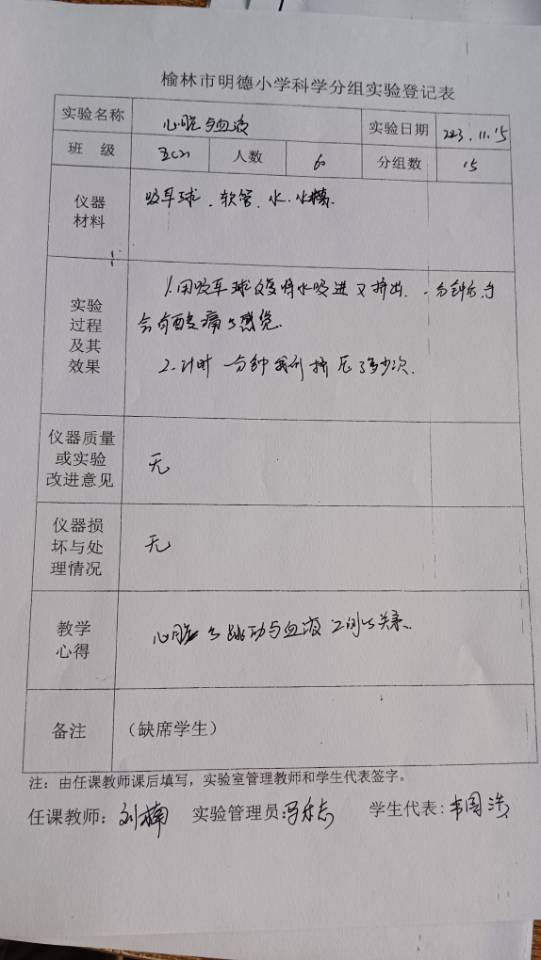 榆林市明德小学科学分组实验登记表
实验名称 心脏与血液 实验日期 2023.11.15
班 级 五(2) 人数 60 分组数 15
仪器材料 吸耳球、软管、水、水槽
实验过程及其效果 1.用吸耳球反复将水吸进又挤出,一分钟后
会有酸痛的感觉.
2.计时一分钟我们挤压了多少次.
仪器质量或实验改进意见 无
仪器损坏与处理情况 无
教学心得 心脏的跳动与血液之间的关系.
备注 (缺席学生)
注:由任课教师课后填写,实验室管理教师和学生代表签字。
任课教师:刘楠 实验管理员: 学生代表: